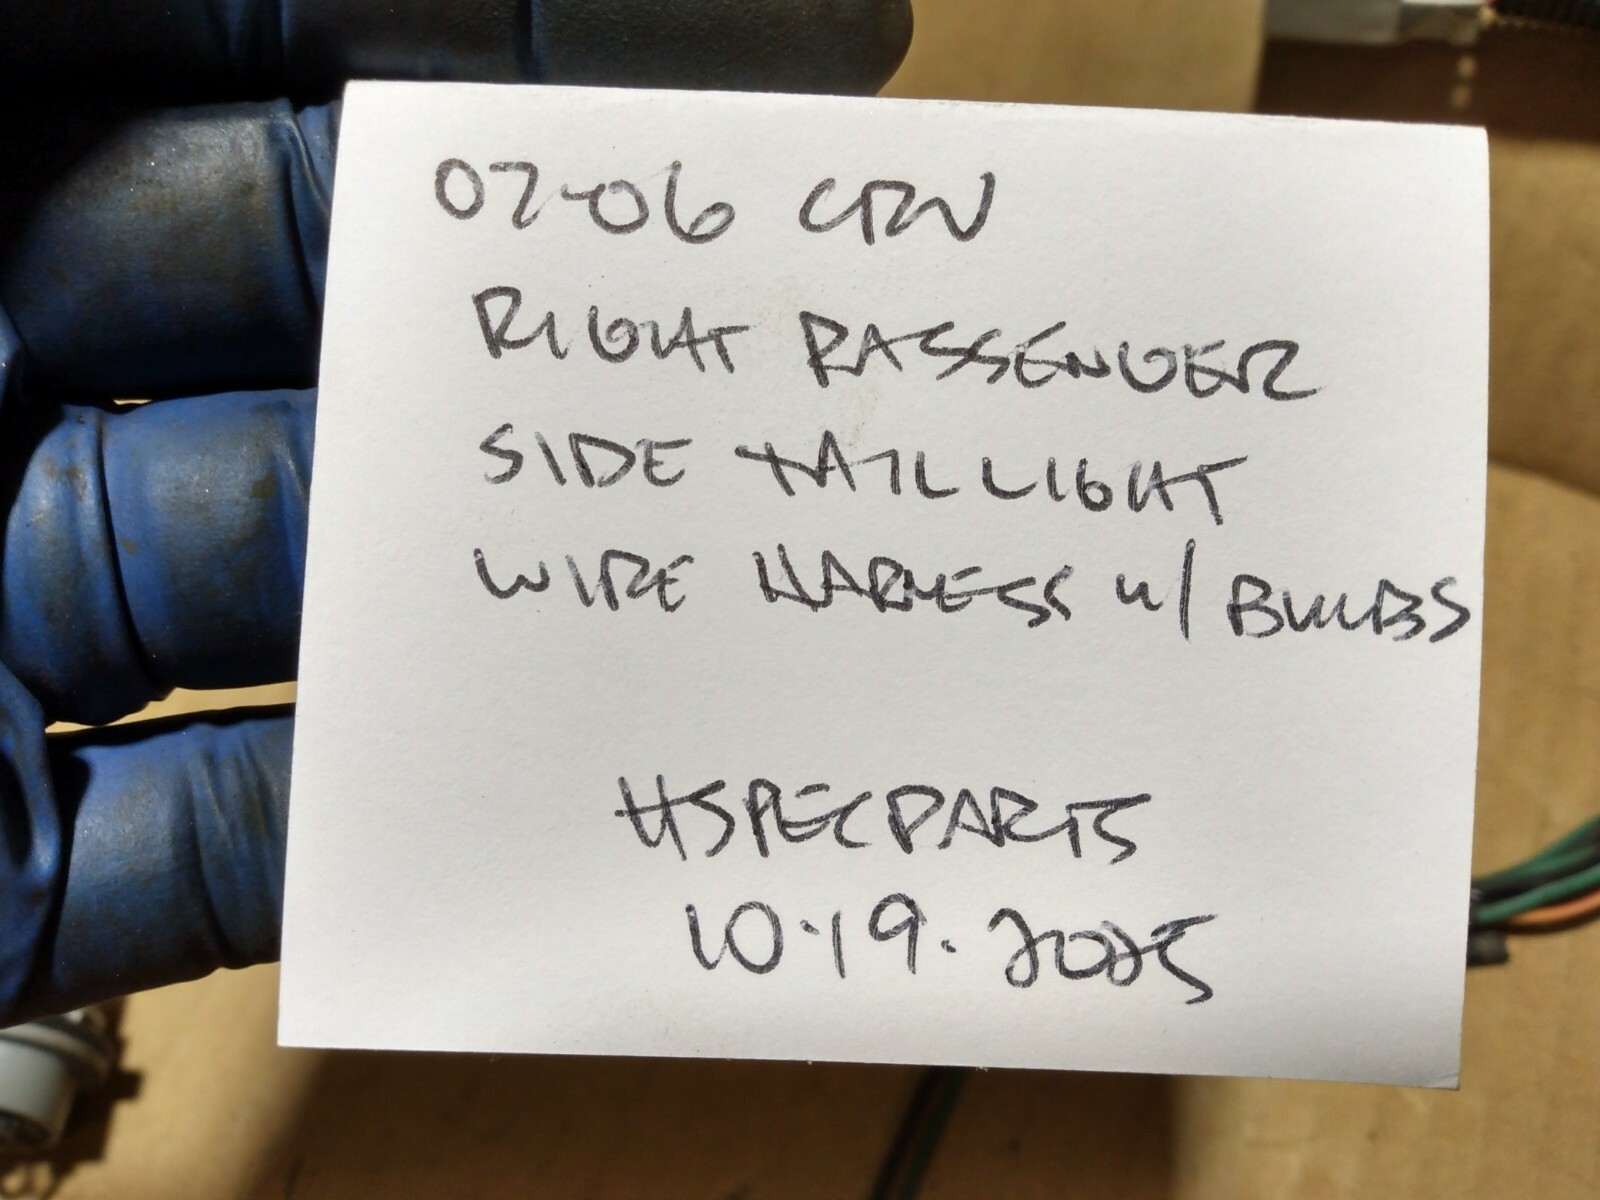 02-06 CRV
RIGHT PASSENGER
SIDE TAILLIGHT
WIRE HARNESS w/ BULBS
HSPECPARTS
10.19.2025